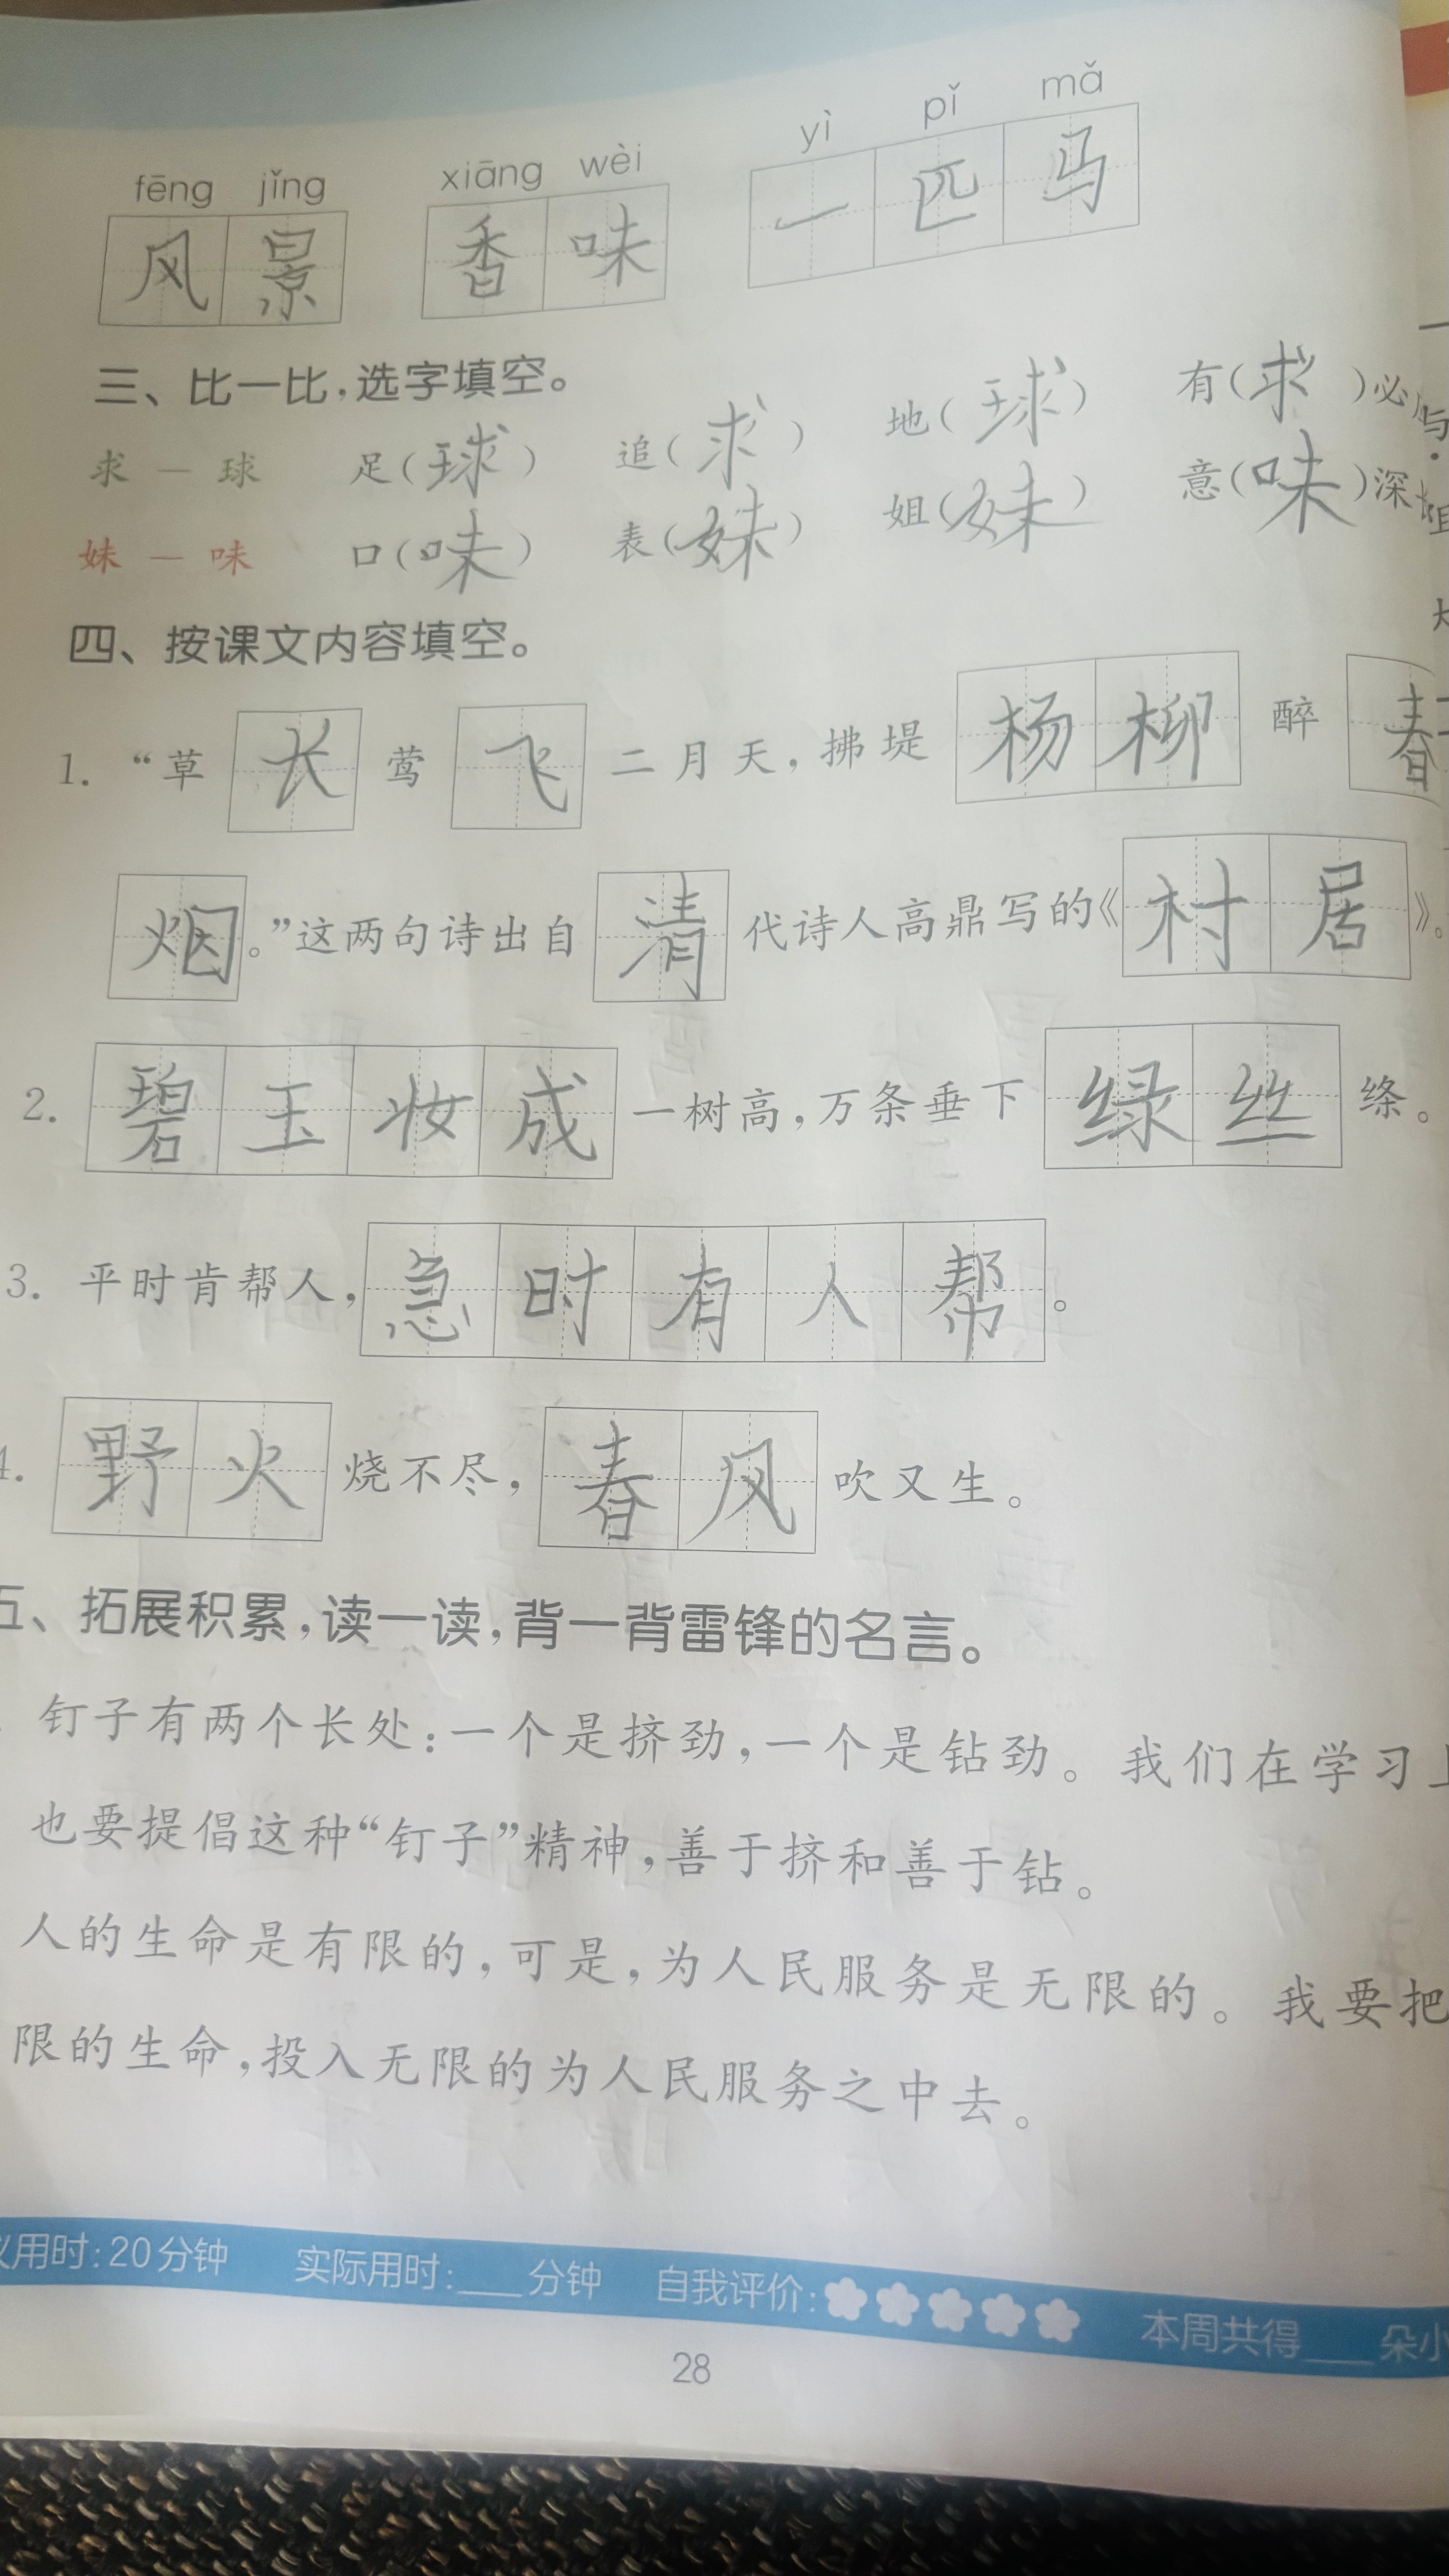 fēng jǐng xiāng wèi yì pǐ mǎ
风景 香味 一匹马
三、比一比,选字填空。
求 — 球 足(球) 追(求) 地(球) 有(求)必
妹 — 味 口(味) 表(妹) 姐(妹) 意(味)深
四、按课文内容填空。
1. “草长莺飞二月天,拂堤杨柳醉春
烟。”这两句诗出自清代诗人高鼎写的《村居》。
2. 碧玉妆成一树高,万条垂下绿丝绦。
3. 平时肯帮人,急时有人帮。
4. 野火烧不尽,春风吹又生。
五、拓展积累,读一读,背一背雷锋的名言。
钉子有两个长处:一个是挤劲,一个是钻劲。我们在学习上
也要提倡这种“钉子”精神,善于挤和善于钻。
人的生命是有限的,可是,为人民服务是无限的。我要把
限的生命,投入无限的为人民服务之中去。
议用时:20分钟 实际用时:___分钟 自我评价: 本周共得___朵小
28